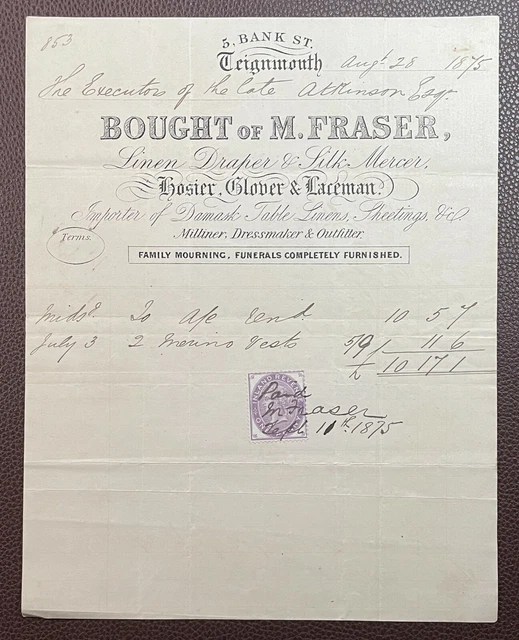 853
5, BANK ST.
Teignmouth Augt 28 1875
The Executors of the late Atkinson Esqr.
BOUGHT OF M. FRASER,
Linen Draper & Silk Mercer,
Hosier, Glover & Laceman.
Importer of Damask Table Linens, Sheetings, &c
Terms.
Milliner, Dressmaker & Outfitter.
FAMILY MOURNING, FUNERALS COMPLETELY FURNISHED.
To a/c rend 10 5 7
July 3 2 Merino Vests 5/9 11 6
£ 10 17 1
INLAND REVENUE
Paid
M Fraser
Sept 11th 1875